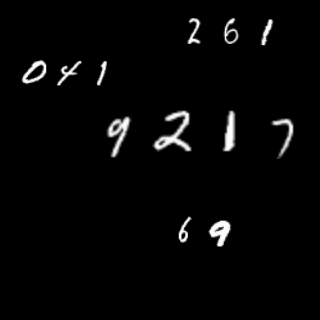 2 6 1
0 4 1
9 2 1 7
6 9